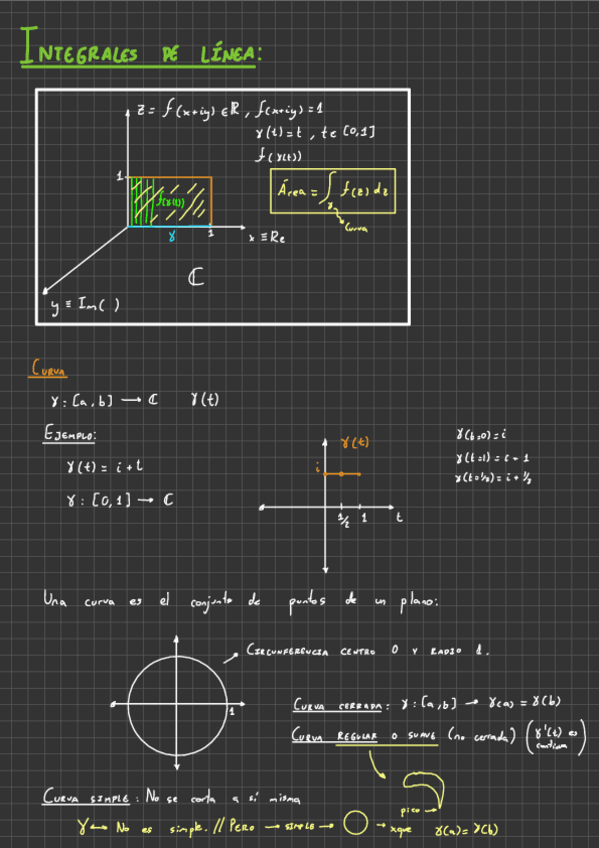 INTEGRALES DE LÍNEA:
z = f(x+iy) ∈ ℝ, f(x+iy) = 1
γ(t) = t, t ∈ [0,1]
f(γ(t))
1
f(γ(t))
Área = ∫γ f(z) dz
Curva
γ
1
x ≡ Re
ℂ
y ≡ Im( )
CURVA
γ: [a,b] → ℂ γ(t)
EJEMPLO:
γ(t) = i + t
γ: [0,1] → ℂ
γ(t)
i
1/2 1 t
γ(t=0) = i
γ(t=1) = i + 1
γ(t=1/2) = i + 1/2
Una curva es el conjunto de puntos de un plano:
CIRCUNFERENCIA CENTRO 0 Y RADIO 1.
1
CURVA CERRADA: γ: [a,b] → γ(a) = γ(b)
CURVA REGULAR O SUAVE (no cerrada) (γ'(t) es continua)
CURVA SIMPLE: No se corta a sí misma
pico →
γ ↔ No es simple. // PERO → SIMPLE → ○ → xque γ(a) = γ(b)